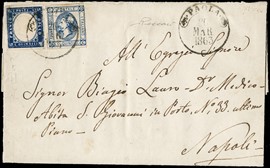 PAOLA
MAR
1863
All' Egregio Signore
Signor Biagio Lauro Dr. Medico
Abita S. Giovanni in Porta, No. 33. ultimo
Piano
Napoli